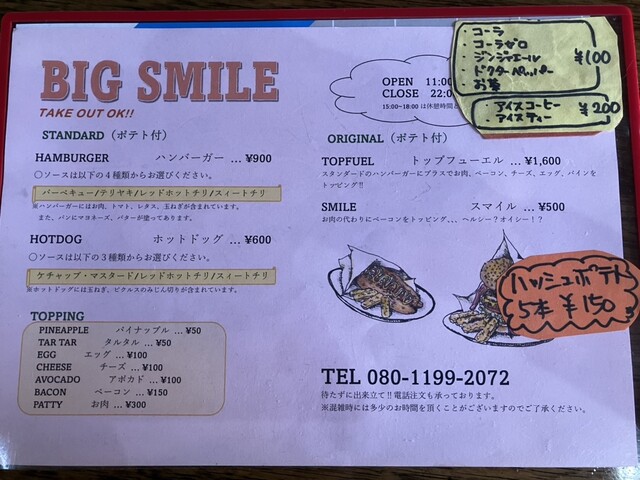 BIG SMILE
TAKE OUT OK!!
STANDARD（ポテト付）
HAMBURGER ハンバーガー … ¥900
○ソースは以下の４種類からお選びください。
バーベキュー/テリヤキ/レッドホットチリ/スィートチリ
※ハンバーガーにはお肉、トマト、レタス、玉ねぎが含まれています。
また、バンにマヨネーズ、バターが塗ってあります。
HOTDOG ホットドッグ … ¥600
○ソースは以下の３種類からお選びください。
ケチャップ・マスタード/レッドホットチリ/スィートチリ
※ホットドッグには玉ねぎ、ピクルスのみじん切りが含まれています。
TOPPING
PINEAPPLE パイナップル … ¥50
TAR TAR タルタル … ¥50
EGG エッグ … ¥100
CHEESE チーズ … ¥100
AVOCADO アボカド … ¥100
BACON ベーコン … ¥150
PATTY お肉 … ¥300
OPEN 11:00
CLOSE 22:0
15:00~18:00 は休憩時間と
・コーラ
・コーラゼロ
・ジンジャエール ¥100
・ドクターペッパー
・お茶
・アイスコーヒー ¥200
・アイスティー
ORIGINAL（ポテト付）
TOPFUEL トップフューエル … ¥1,600
スタンダードのハンバーガーにプラスでお肉、ベーコン、チーズ、エッグ、パインを
トッピング!!
SMILE スマイル … ¥500
お肉の代わりにベーコンをトッピング、、、ヘルシー？オイシー！？
ハッシュポテト
5本 ¥150
TEL 080-1199-2072
待たずに出来立て!!電話注文も承っております。
※混雑時には多少のお時間を頂くことがございますのでご了承ください。